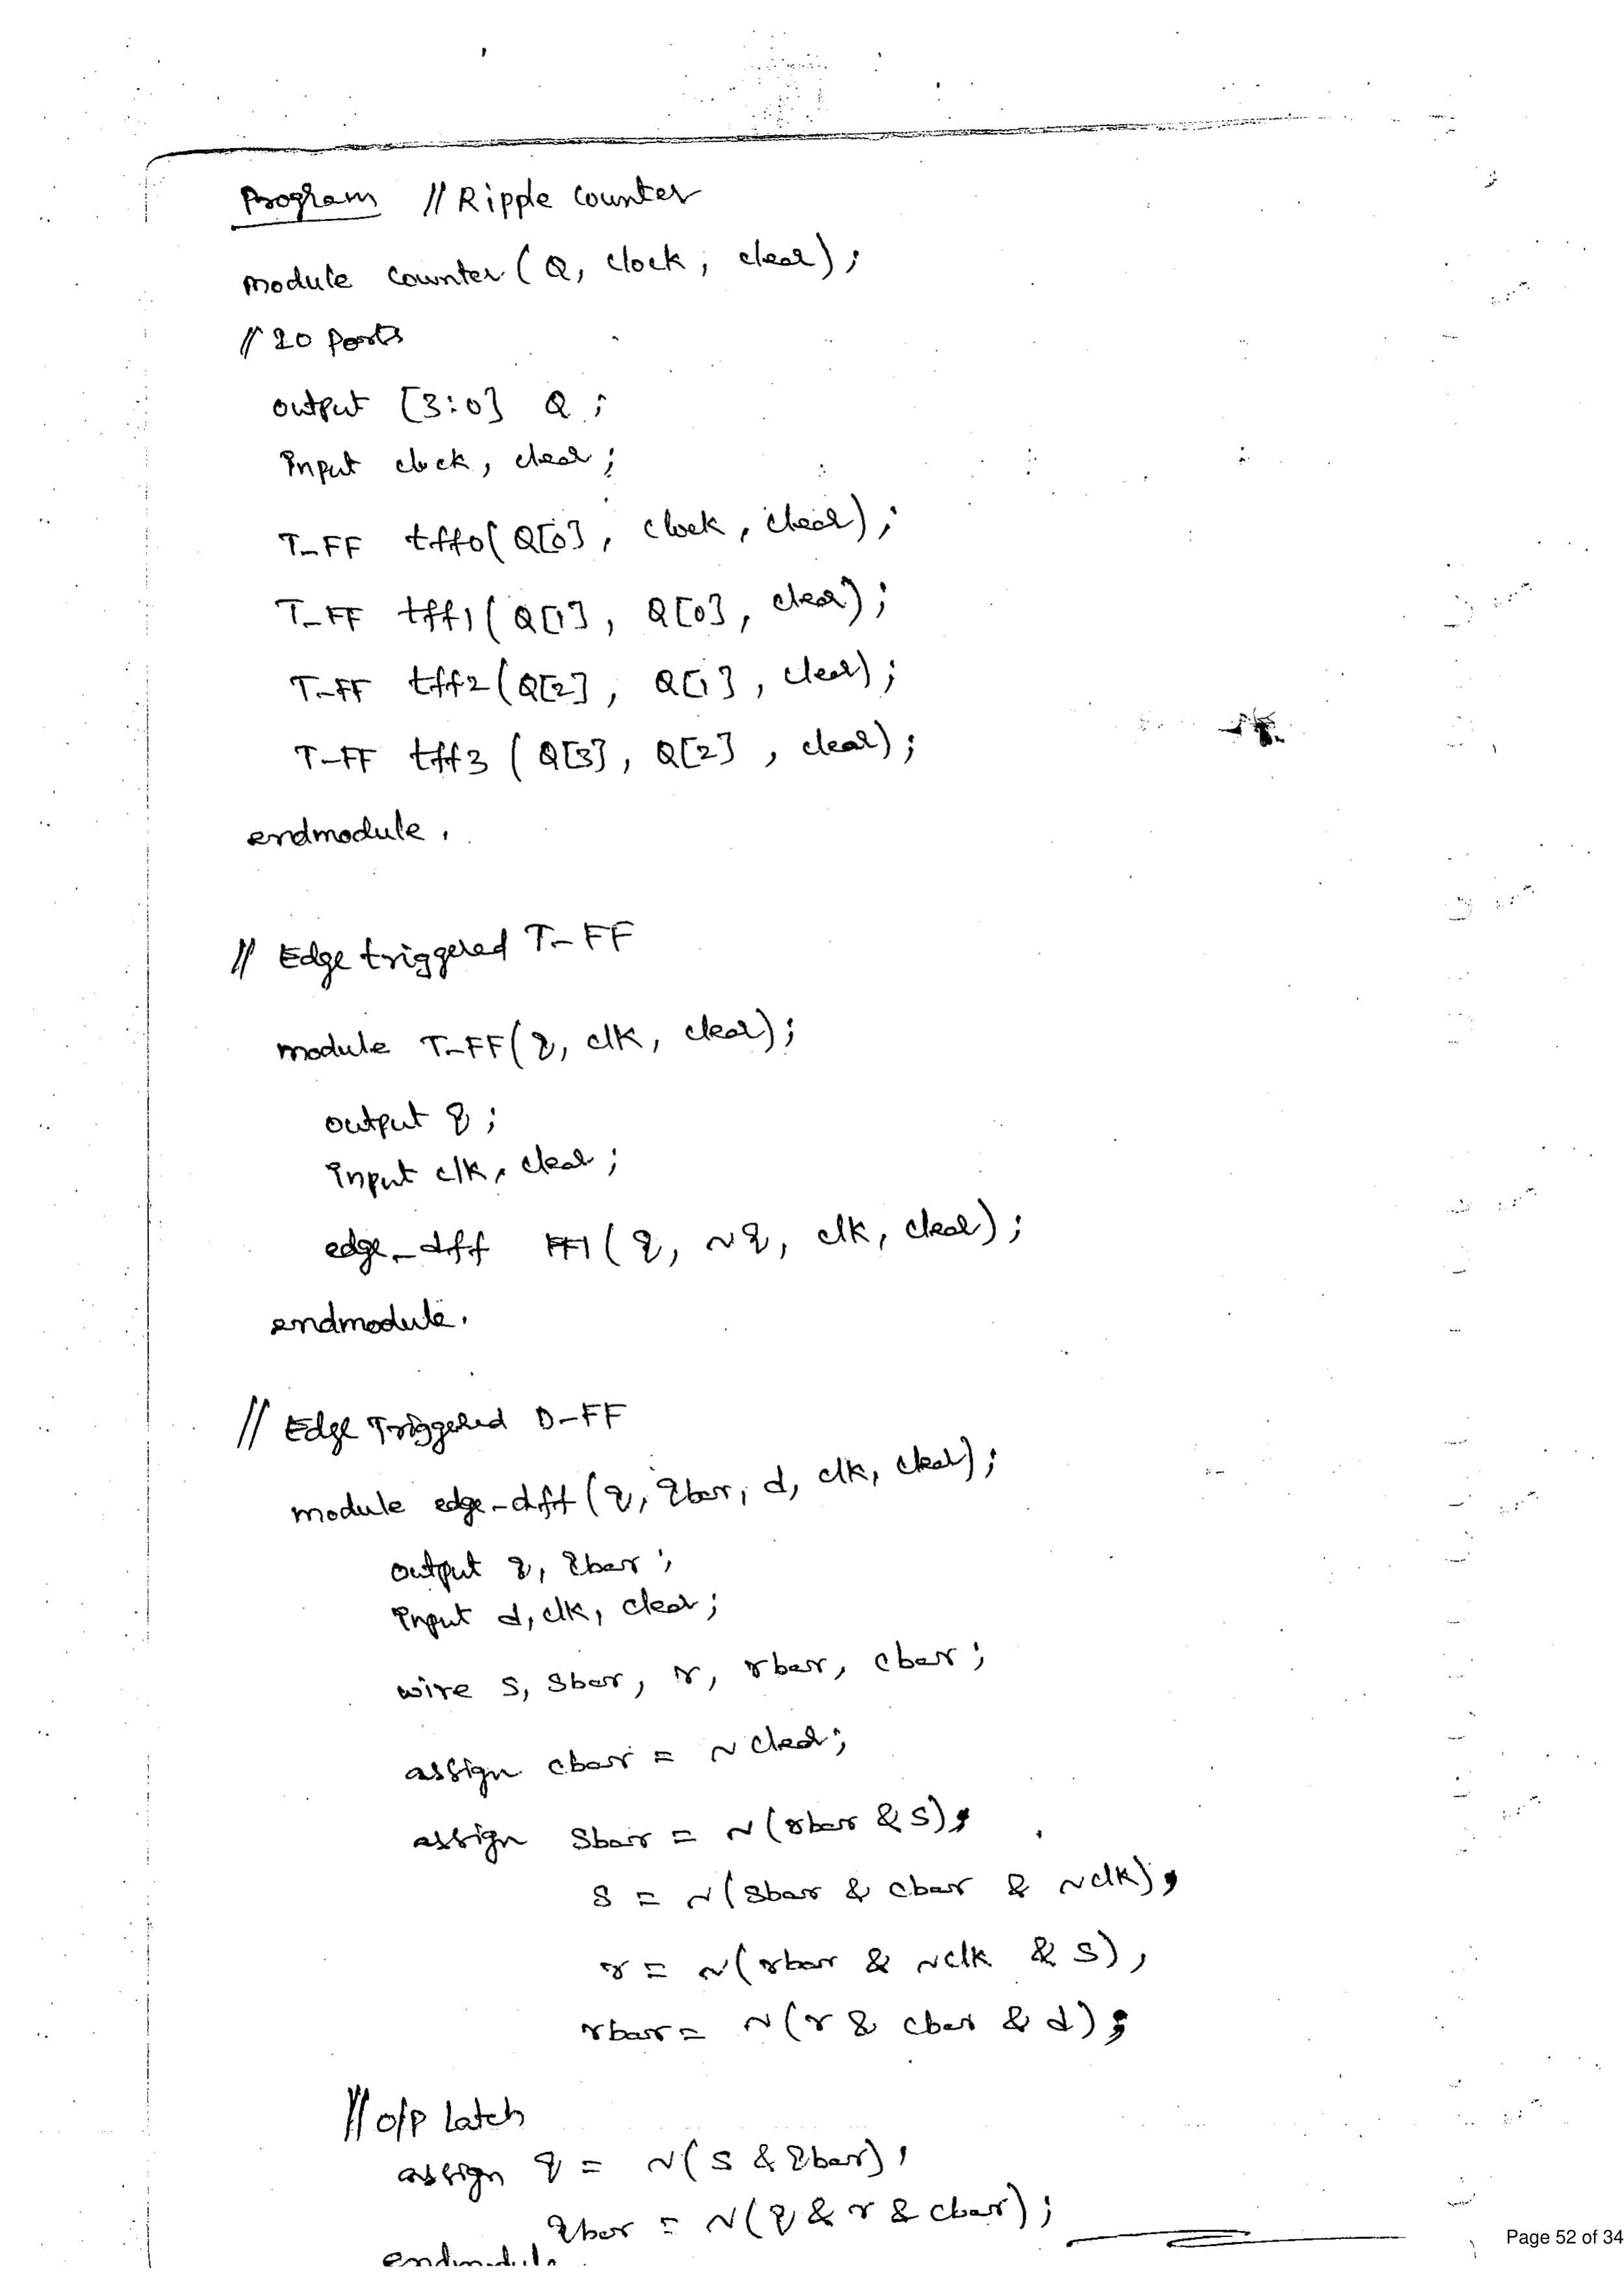 Program // Ripple counter
module counter ( Q, clock, clear);
// 20 Ports
output [3:0] Q ;
input clock, clear;
T_FF tff0( Q[0], clock, clear);
T_FF tff1( Q[1], Q[0], clear);
T_FF tff2( Q[2], Q[1], clear);
T_FF tff3 ( Q[3], Q[2], clear);
endmodule.
// Edge triggered T_FF
module T_FF( q, clk, clear);
output q ;
input clk, clear ;
edge_dff FF1( q, ~q, clk, clear);
endmodule.
// Edge Triggered D-FF
module edge-dff ( q, qbar, d, clk, clear);
output q, qbar ;
input d, clk, clear;
wire s, sbar, r, rbar, cbar ;
assign cbar = ~ clear;
assign sbar = ~(rbar & s),
s = ~(sbar & cbar & ~clk),
r = ~(rbar & ~clk & s),
rbar = ~(r & cbar & d);
// o/p latch
assign q = ~( s & qbar),
qbar = ~(q & r & cbar);
endmodule.
Page 52 of 34